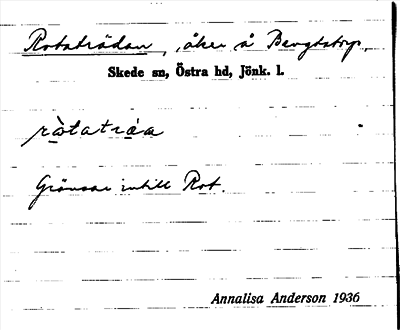 Rotaträdan, åker å Bengtstorp,
Skede sn, Östra hd, Jönk. l.
ròtatráa
Gränsar intill Rot.
Annalisa Anderson 1936